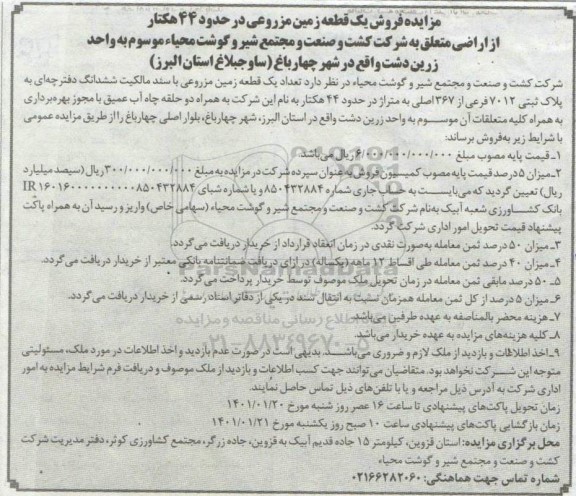 مزایده فروش یک قطعه زمین مزروعی در حدود ۴۴ هکتار
از اراضی متعلق به شرکت کشت و صنعت و مجتمع شیر و گوشت محیاء موسوم به واحد
زرین دشت واقع در شهر چهارباغ (ساوجبلاغ استان البرز)
شرکت کشت و صنعت و مجتمع شیر و گوشت محیاء در نظر دارد تعداد یک قطعه زمین مزروعی با سند مالکیت ششدانگ دفترچه‌ای به
پلاک ثبتی ۷۰۱۲ فرعی از ۳۶۷ اصلی به متراژ در حدود ۴۴ هکتار به نام این شرکت به همراه دو حلقه چاه آب عمیق با مجوز بهره‌برداری
به همراه کلیه متعلقات آن موسوم به واحد زرین دشت واقع در استان البرز، شهر چهارباغ، بلوار اصلی چهارباغ را از طریق مزایده عمومی
با شرایط زیر به‌فروش برساند:
۱- قیمت پایه مصوب مبلغ ۶/۰۰۰/۰۰۰/۰۰۰/۰۰۰ ریال می‌باشد.
۲- میزان ۵ درصد قیمت پایه مصوب کمیسیون فروش به عنوان سپرده شرکت در مزایده به مبلغ ۳۰۰/۰۰۰/۰۰۰/۰۰۰ ریال (سیصد میلیارد
ریال) تعیین گردید که می‌بایست به حساب جاری شماره ۸۵۰۴۳۲۸۸۴ و یا شماره شبای IR ۱۶۰۱۶۰۰۰۰۰۰۰۰۰۰۰۸۵۰۴۳۲۸۸۴
بانک کشاورزی شعبه آبیک به‌نام شرکت کشت و صنعت و مجتمع شیر و گوشت محیاء (سهامی خاص) واریز و رسید آن به همراه پاکت
پیشنهاد قیمت تحویل امور اداری شرکت گردد.
۳- میزان ۵۰ درصد ثمن معامله به‌صورت نقدی در زمان انعقاد قرارداد از خریدار دریافت می‌گردد.
۴- میزان ۴۰ درصد ثمن معامله طی اقساط ۱۲ ماهه (یکساله) در ازای دریافت ضمانتنامه بانکی معتبر از خریدار دریافت می‌گردد.
۵- ۵ درصد مابقی ثمن معامله در زمان تحویل ملک موصوف توسط خریدار پرداخت می‌گردد.
۶- میزان ۵ درصد از کل ثمن معامله همزمان نسبت به انتقال سند در یکی از دفاتر اسناد رسمی از خریدار دریافت می‌گردد.
۷- هزینه محضر بالمناصفه به عهده طرفین می‌باشد.
۸- کلیه هزینه‌های مزایده به عهده خریدار می‌باشد.
۹- اخذ اطلاعات و بازدید از ملک لازم و ضروری می‌باشد. بدیهی است در صورت عدم بازدید و اخذ اطلاعات در مورد ملک، مسئولیتی
متوجه این شرکت نخواهد بود. متقاضیان می‌توانند جهت کسب اطلاعات و بازدید از ملک موصوف و دریافت فرم شرایط مزایده به امور
اداری شرکت به آدرس ذیل مراجعه و یا با تلفن‌های ذیل تماس حاصل نمایند.
زمان تحویل پاکت‌های پیشنهادی تا ساعت ۱۶ عصر روز شنبه مورخ ۱۴۰۱/۰۱/۲۰
زمان بازگشایی پاکت‌های پیشنهادی ساعت ۱۰ صبح روز یکشنبه مورخ ۱۴۰۱/۰۱/۲۱
محل برگزاری مزایده: استان قزوین، کیلومتر ۱۵ جاده قدیم آبیک به قزوین، جاده زرگر، مجتمع کشاورزی کوثر، دفتر مدیریت شرکت
کشت و صنعت و مجتمع شیر و گوشت محیاء
شماره تماس جهت هماهنگی: ۰۲۱۶۶۲۸۲۰۶۰
ParsNamadData
اطلاع رسانی مناقصه و مزایده
۰۲۱-۸۸۳۴۹۶۷۰-۵